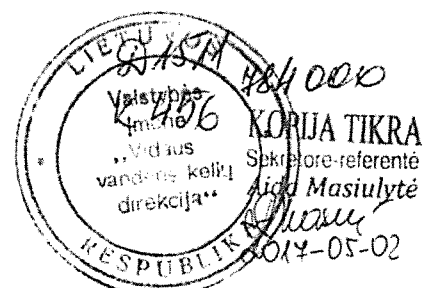 LIETUVOS
RESPUBLIKA
Valstybės
įmonė
„Vidaus
vandens kelių
direkcija“
D15H
K 456
KOPIJA TIKRA
Sekretorė-referentė
Aida Masiulytė
2017-05-02